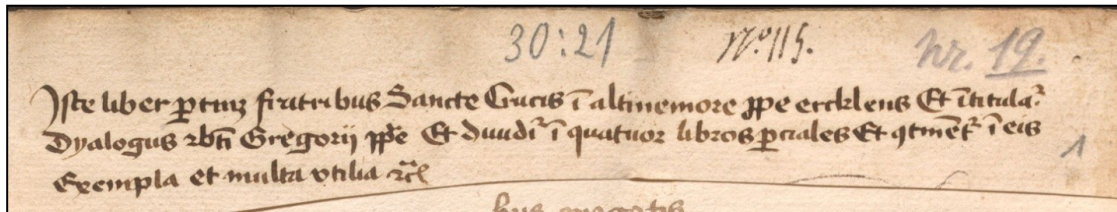 30:21 No 115. Nr. 19.
Iste liber ꝑtinꝫ fratribus Sancte Crucis ī altinemore ꝓpe ercklens Et ītitulaᷣ
Dyalogus bt̄i Gregorij ꝑpe Et diuidiᷣ ī quatuor libros ꝑciales Et ꝯtinēᷣ ī eis
Exempla et multa vtilia ⁊c̄
1